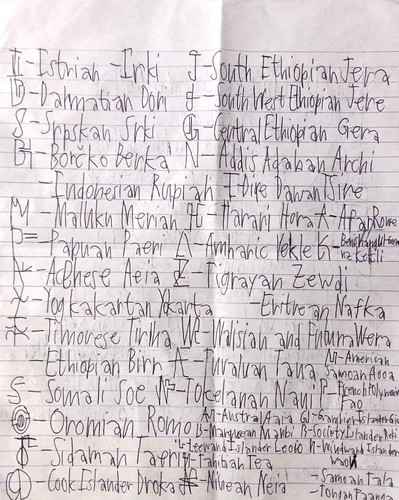 -Istrian Inki J-South Ethiopian Jera
D-Dalmatian Dori J-South West Ethiopian Jere
S-Srpskan Srki G-Central Ethiopian Gera
-Borčko Berka N-Addis Ababan Archi
-Indonesian Rupiah I-Dire Dawan Tsire
M-Maluku Merian H-Harari Hora A-Afar Rowe
P=-Papuan Paeri Λ-Amharic Vekle
-Acehese Aeia Z-Tigrayan Zewdi
-Yogkakartan Yokarta -Eritrean Nafka
-Timorese Tirlha We-Walsian and Futuna Wera
-Ethiopian Birr -Tuvaluan Taua -American Samoan
S-Somali Soe -Tokelanan Nani P-French Polynesian Pao
-Oromian Romo -Austral Aala -Gambier Islander
-Marquesan -Society Islander
-Sidamah -Leeward Islander -Windward Islander
-Tahitian Tea
-Cook Islander Droka -Niuean Neira -Samoan Tala
-Tongan Paanga